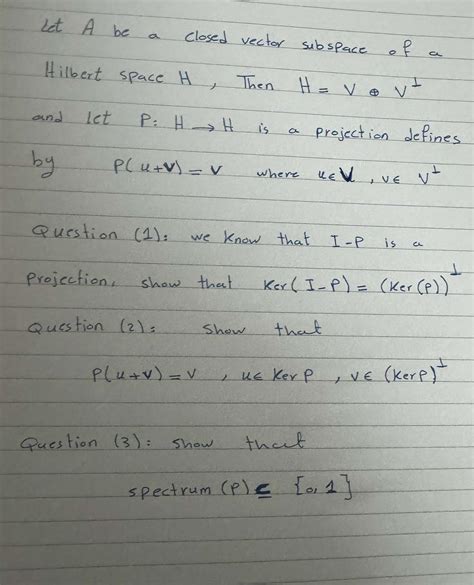 Let A be a closed vector subspace of a
Hilbert space H , Then H = V ⊕ V⊥
and let P: H → H is a projection defines
by P(u+v) = v where u∈V , v∈ V⊥
Question (1): we know that I-P is a
projection, show that Ker(I-P) = (Ker(P))⊥
Question (2): show that
P(u+v) = v , u∈ Ker P , v∈ (Ker P)⊥
Question (3): show that
spectrum (P) ⊆ {0,1}